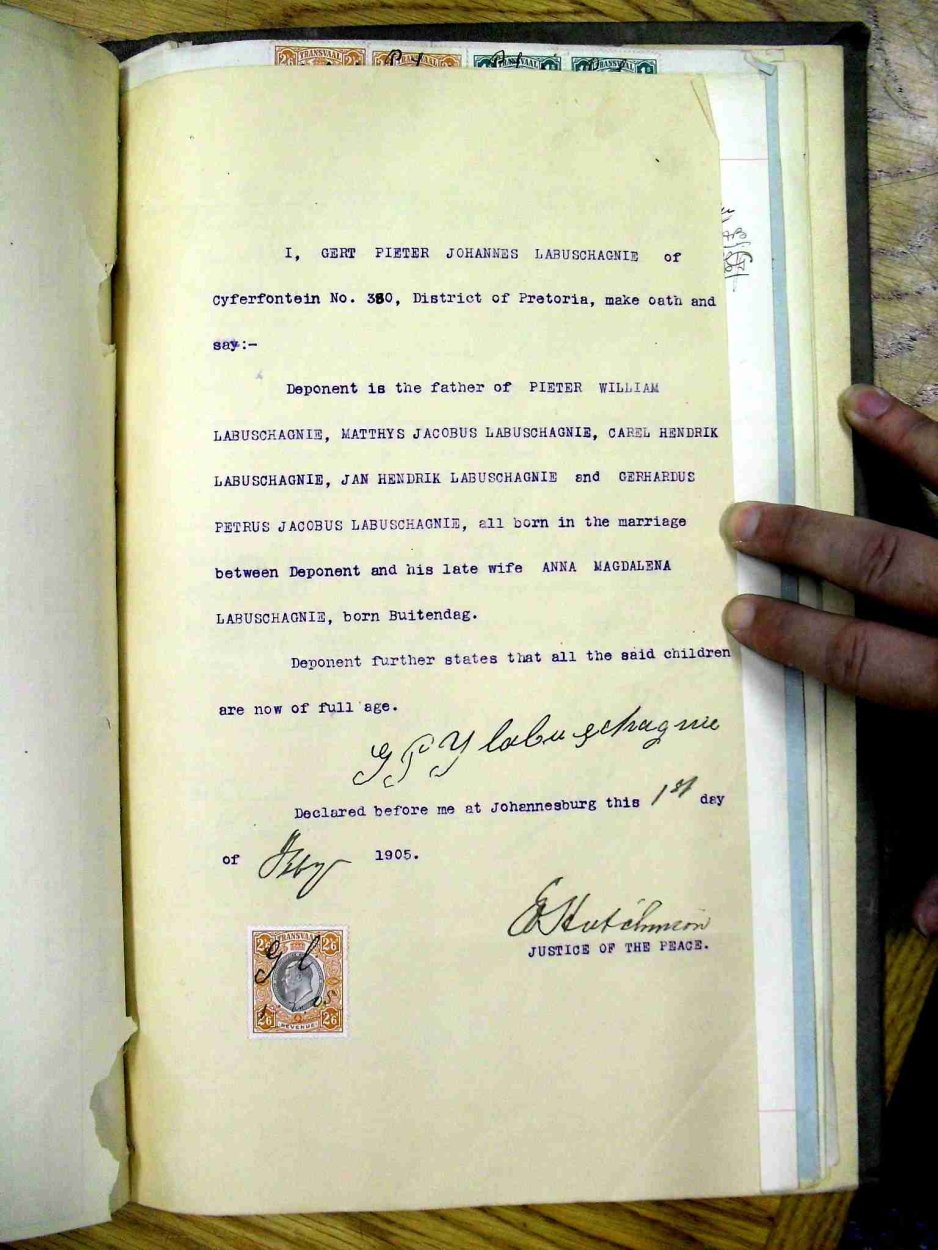 TRANSVAAL TRANSVAAL TRANSVAAL TRANSVAAL
I, GERT PIETER JOHANNES LABUSCHAGNIE of
Cyferfontein No. 380, District of Pretoria, make oath and
say:-
Deponent is the father of PIETER WILLIAM
LABUSCHAGNIE, MATTHYS JACOBUS LABUSCHAGNIE, CAREL HENDRIK
LABUSCHAGNIE, JAN HENDRIK LABUSCHAGNIE and GERHARDUS
PETRUS JACOBUS LABUSCHAGNIE, all born in the marriage
between Deponent and his late wife ANNA MAGDALENA
LABUSCHAGNIE, born Buitendag.
Deponent further states that all the said children
are now of full age.
G P J labuschagnie
Declared before me at Johannesburg this 1st day
of Feby 1905.
Hutchinson
JUSTICE OF THE PEACE.
TRANSVAAL
2/6 2/6
2/6 2/6
REVENUE